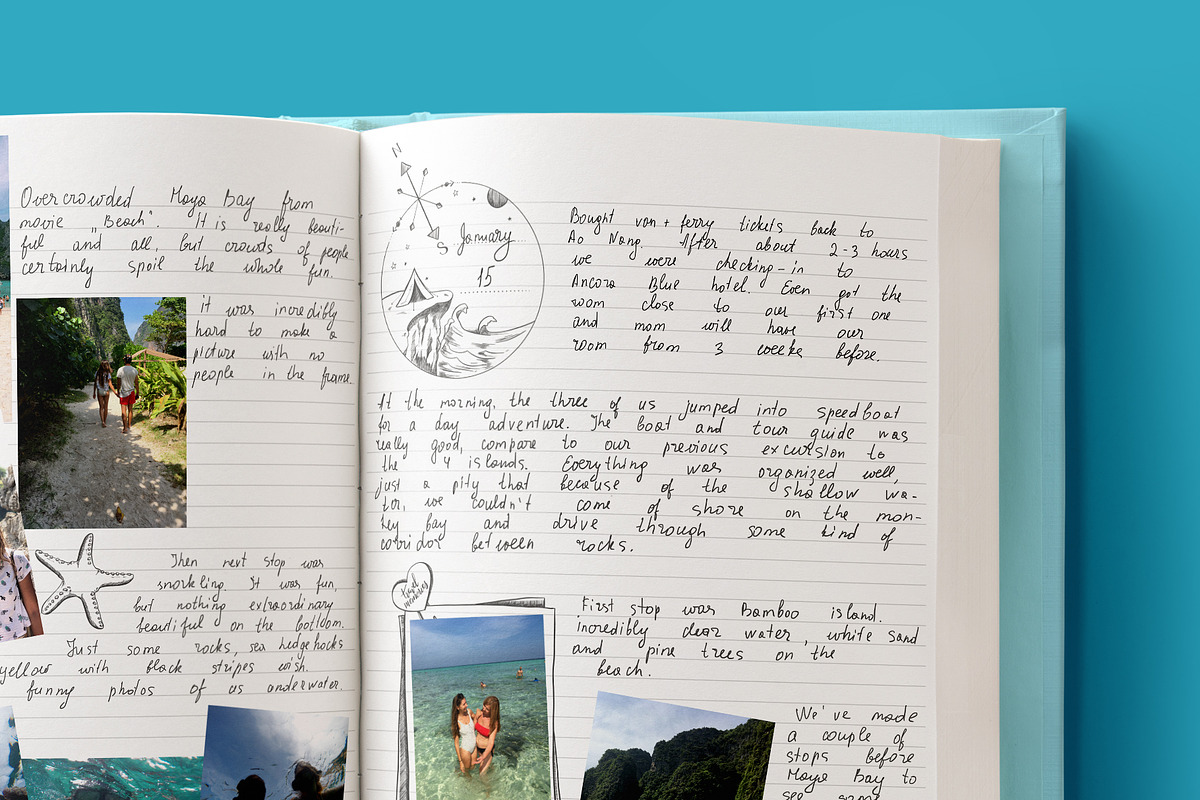 Overcrowded Maya Bay from
movie „Beach". It is really beauti-
ful and all, but crowds of people
certainly spoil the whole fun.
it was incredibly
hard to make a
picture with no
people in the frame.
Then next stop was
snorkeling. It was fun,
but nothing extraordinary
beautiful on the bottom.
Just some rocks, sea hedgehocks
yellow with black stripes wish.
funny photos of us underwater.
N
S
January
15
Bought van + ferry tickets back to
Ao Nang. After about 2-3 hours
we were checking-in to
Ancora Blue hotel. Even got the
room close to our first one
and mom will have our
room from 3 weeke before.
At the morning, the three of us jumped into speedboat
for a day adventure. The boat and tour guide was
really good, compare to our previous excursion to
the 4 islands. Everything was organized well,
just a pity that because of the shallow wa-
ter, we couldn't come of shore on the mon-
key bay and drive through some kind of
corridor between rocks.
travel
memories
First stop was Bamboo island.
incredibly clear water, white sand
and pine trees on the
beach.
We've made
a couple of
stops before
Maya Bay to
see some